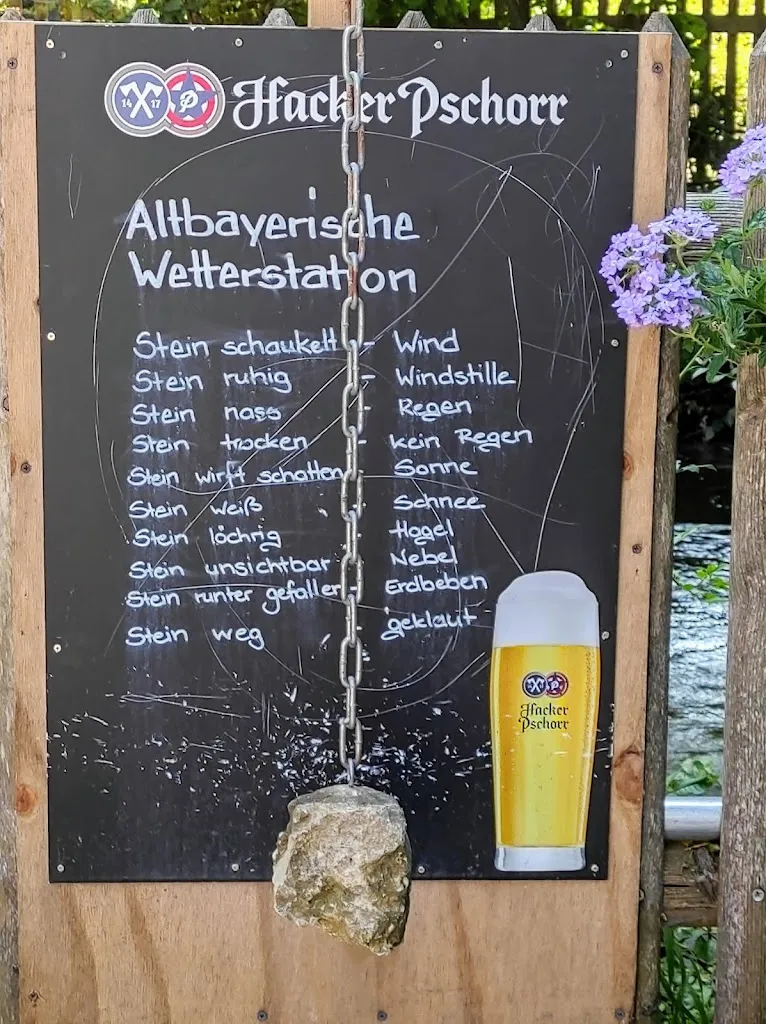 14 17 P Hacker Pschorr
Altbayerische
Wetterstation
Stein schaukelt - Wind
Stein ruhig - Windstille
Stein nass - Regen
Stein trocken - kein Regen
Stein wirft schatten Sonne
Stein weiß Schnee
Stein löchrig Hagel
Stein unsichtbar Nebel
Stein runter gefallen Erdbeben
Stein weg geklaut
Hacker
Pschorr